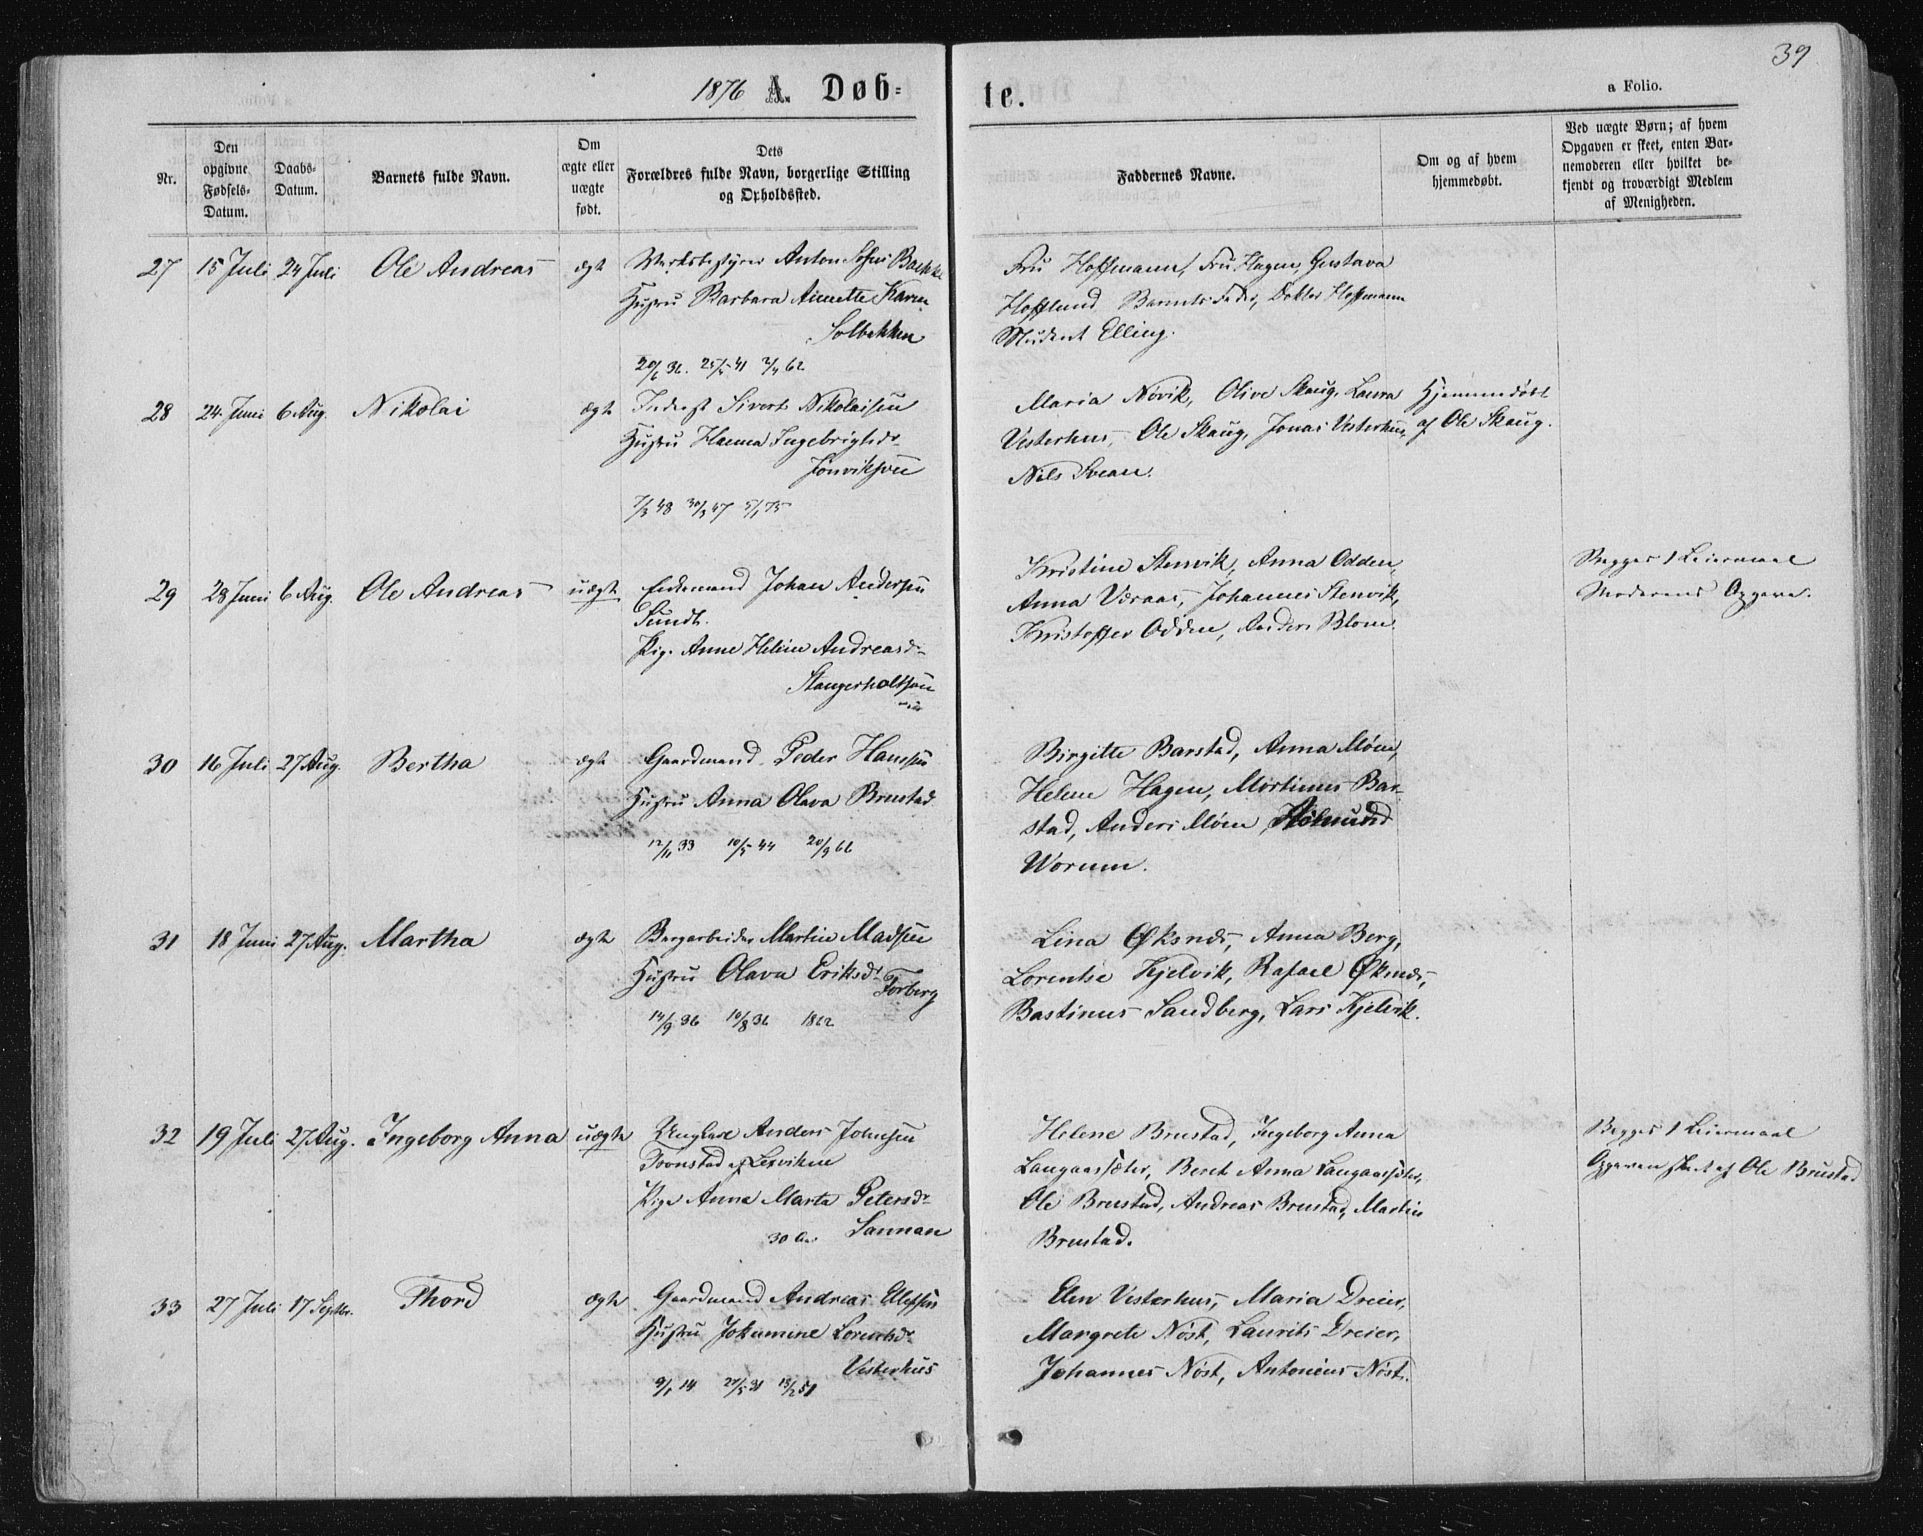 39
1876 A. Døb-
te.
a Folio.
Nr.
Den opgivne Fødsels-Datum.
Daabs-Datum.
Barnets fulde Navn.
Om ægte eller uægte født.
Dets Forældres fulde Navn, borgerlige Stilling og Opholdssted.
Faddernes Navne.
Om og af hvem hjemmedøbt.
Ved uægte Børn; af hvem Opgaven er skeet, enten Barnemoderen eller hvilket bekjendt og troværdigt Medlem af Menigheden.
27 15 Juli 24 Juli Ole Andreas ægt Anton Bakke
Hustru Barbara Annette Karen
Solbakken
20/6 36. 25/5 41 2/4 62
Fru Hoffmann, Fru Hagen, Gustava
Hofflund Barnets Fader, Doktor Hoffmann
Student Elling.
28 24. Juni 6 Aug. Nikolai ægte Inderst Sivert Nikolaisen
Hustru Hanna Ingebrigtsdr
7/3 48 30/3 47 5/1 75
Maria Növik, Olive Skaug, Laura
Vesterhus, Ole Skaug, Jonas Vesterhus,
Nils Svean.
Hjemmedöbt
af Ole Skaug.
29 28 Juni 6 Aug. Ole Andreas uægt Enkemand Johan Andersen
Sundt.
Pig. Anne Heline Andreasdr
Kristine Stenvik, Anna Odden,
Anna Veraas, Johannes Stenvik,
Kristoffer Odden, Anders Blom.
Begges 1 Leiermaal
Moderens Opgave.
30 16 Juli 27 Aug. Bertha ægte Gaardmand Peder Hansen
Hustru Anna Olava Brustad
12/11 33 10/5 44 20/9 66
Birgitte Barstad, Anna Möen,
Helene Hagen, Mortinus Bar-
stad, Anders Möen,
Worum.
31 18 Juni 27 Aug. Martha ægte Bergarbeider Martin Madsen
Hustru Olava Eriksdr Forberg
14/9 36 10/8 36 1862
Lina Øksnes, Anna Berg,
Lorentse Kjelvik, Rafael Øksnes,
Bastinus Sandberg, Lars Kjelvik.
32 19 Juli 27 Aug. Ingeborg Anna uægte Ungkarl Anders Johnsen
Tronstad af Lexviken
Pige Anna Marta Petersdr
30 Aar Sannan
Helene Brustad, Ingeborg Anna
Langaassæter, Beret Anna Langaassæter,
Ole Brustad, Andreas Brustad, Martin
Brustad.
Begges 1 Leiermaal
Opgaven skeet af Ole Brustad
33 27 Juli 17 Septbr. Thord ægte Gaardmand Andreas Ellefsen
Hustru Jokumine Lorentsdr
Vesterhus
9/1 14 29/5 31 13/2 51
Elen Vesterhus, Maria Dreier,
Margrete Nöst, Laurits Dreier,
Johannes Nöst, Antonius Nöst.